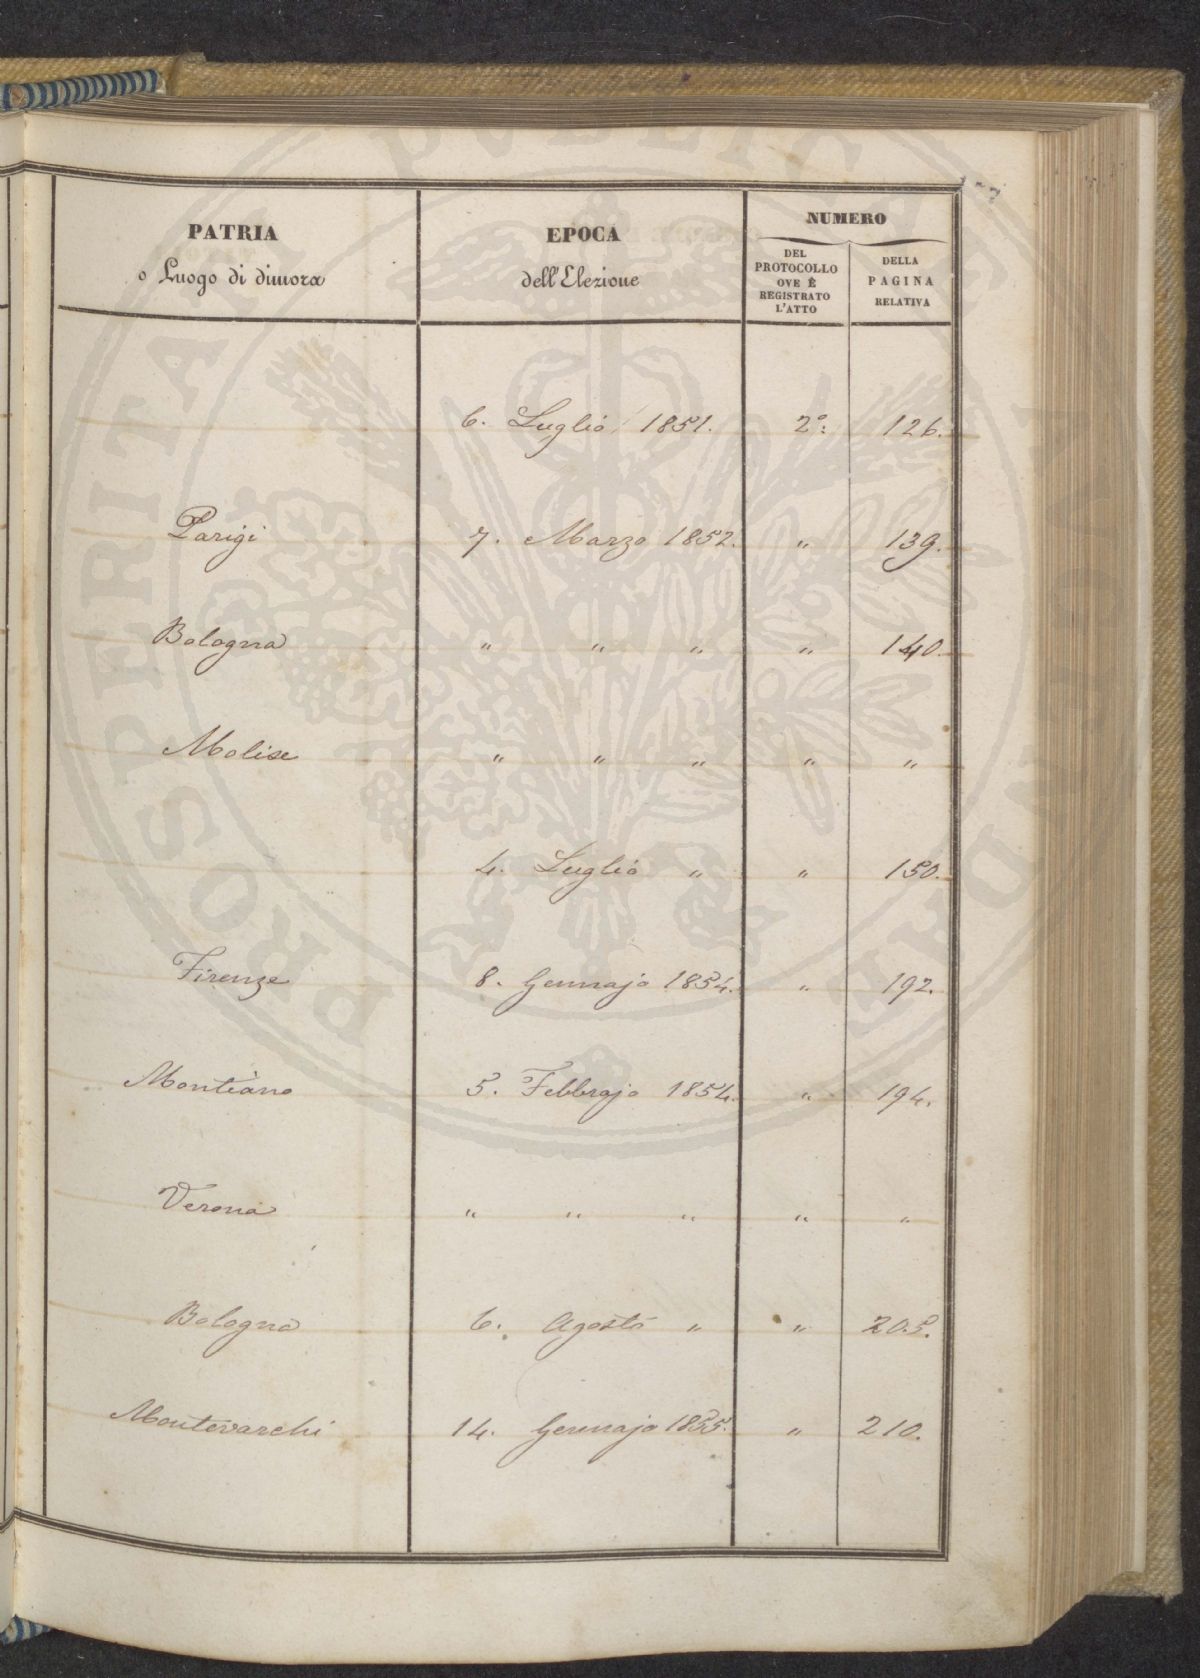 PATRIA
o Luogo di dimora
EPOCA
dell'Elezione
NUMERO
DEL
PROTOCOLLO
OVE È
REGISTRATO
L'ATTO
DELLA
PAGINA
RELATIVA
6. Luglio 1851. 2°: 126.
Parigi 7. Marzo 1852. " 139.
Bologna " " " " 140.
Molise " " " " "
4. Luglio " " 150.
Firenze 8. Gennajo 1854. " 192.
Montiano 5. Febbrajo 1854. " 194.
Verona " " " " "
Bologna 6. Agosto " " 205.
Montevarchi 14. Gennajo 1855. " 210.